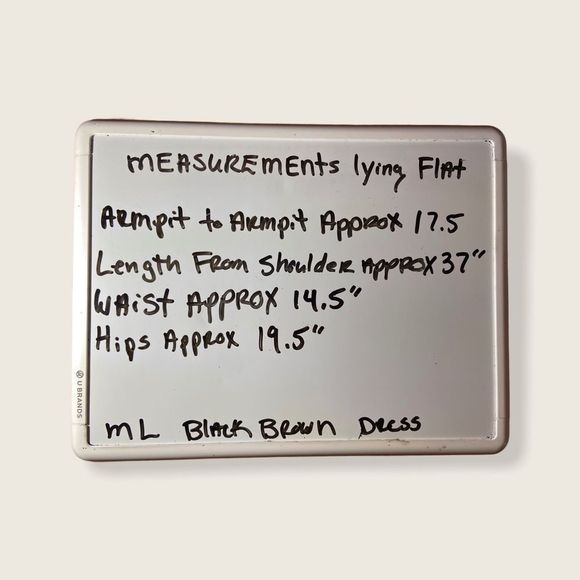 MEASUREMEnts lying Flat
ARmpit to ARmpit Approx 17.5
Length From Shoulder Approx 37"
WAist Approx 14.5"
Hips Approx 19.5"
U BRANDS
mL Black Brown Dress